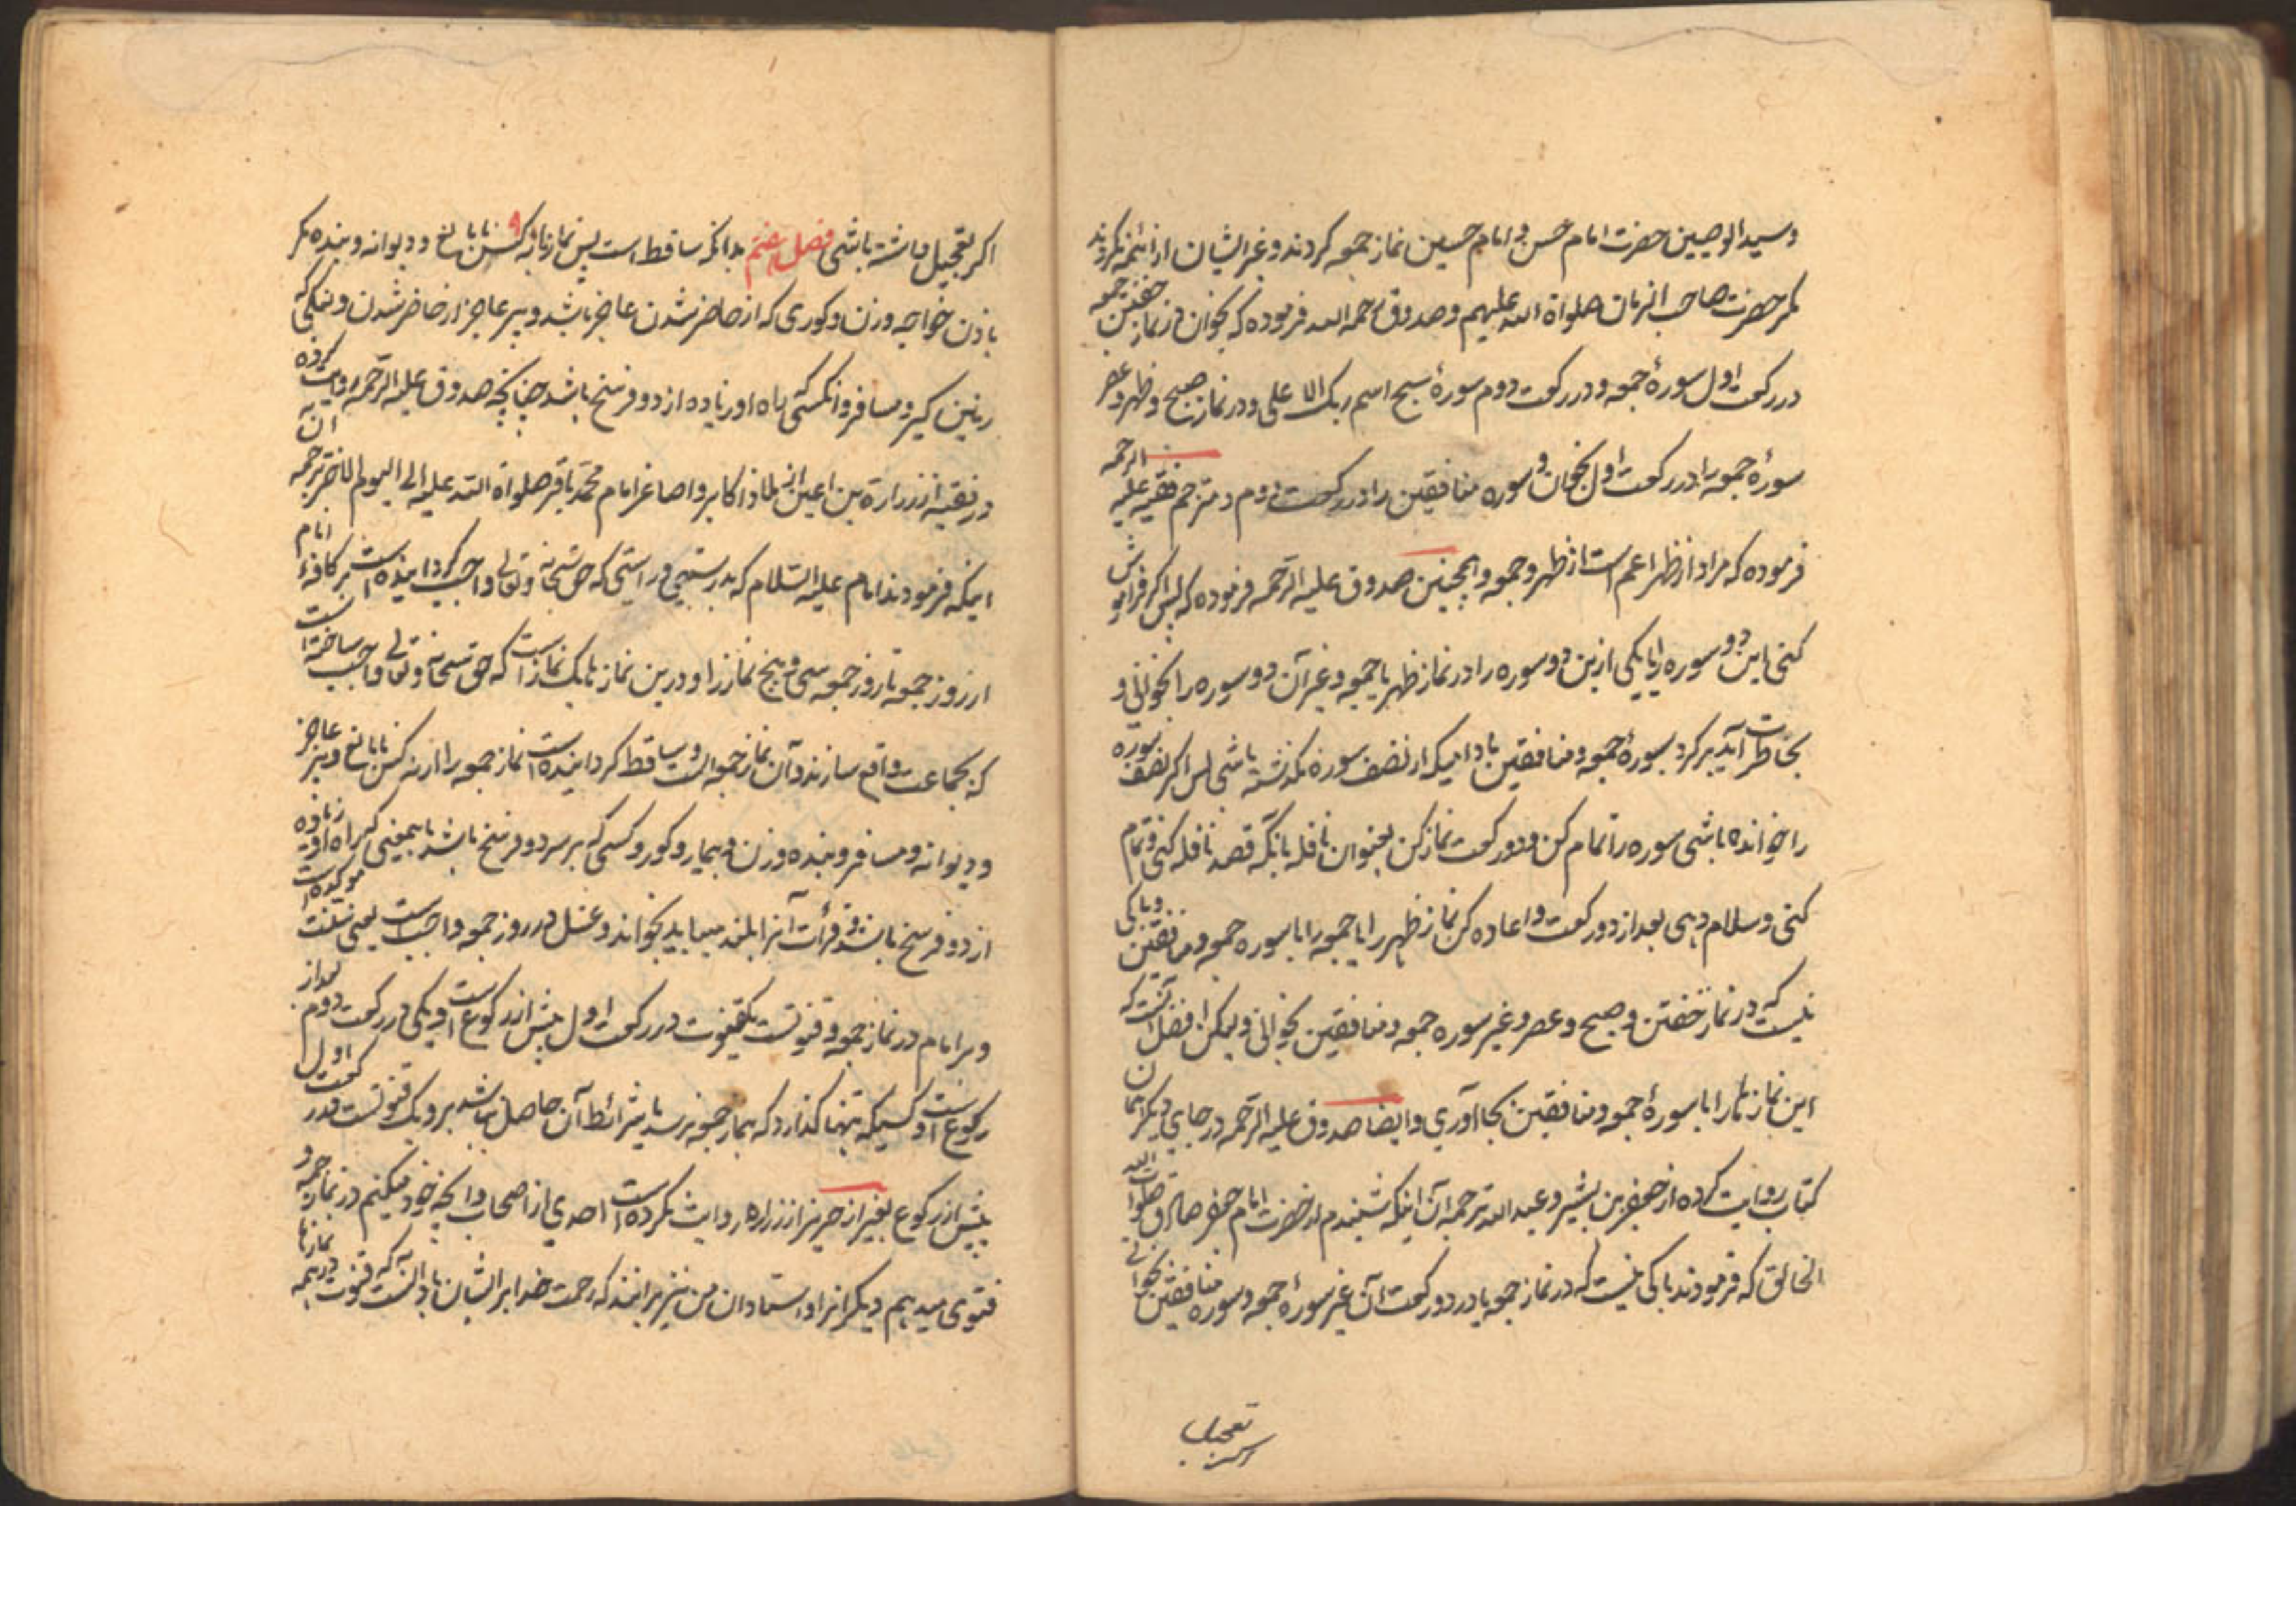 وسید الوصیین حضرت امام حسن و امام حسین نماز جمعه کردند و غیر ایشان از ائمه نکردند
مکر حضرت صاحب الزمان صلواة الله علیهم وصدوق رحمه الله فرموده که بخوان در نماز خفتن جمعه
در رکعت اول سورهٔ جمعه و در رکعت دوم سورهٔ سبح اسم ربک الاعلی و در نماز صبح و ظهر و عصر
سورهٔ جمعه را در رکعت اول بخوان و سوره منافقین را در رکعت دوم و مترجم فقیه علیه الرحمه
فرموده که مراد از ظهر اعم است از ظهر و جمعه و همچنین صدوق علیه الرحمه فرموده که پس اکر فراموش
کنی این دو سوره را یا یکی ازین دو سوره را در نماز ظهر یا جمعه و غیر آن دو سوره را بخوانی و
بخاطرت آید برکرد بسورهٔ جمعه و منافقین مادامیکه از نصف سوره نکذشته باشی پس اکر نصف سوره
را خوانده باشی سوره را تمام کن و دو رکعت نماز کن بعنوان نافله بانکه قصد نافله کنی و تمام
کنی وسلام دهی بعد از دو رکعت و اعاده کن نماز ظهر را یا جمعه را با سوره جمعه و منافقین و باکی
نیست که در نماز خفتن و صبح و عصر و غیر سوره جمعه و منافقین بخوانی ولیکن افضل آنست که
این نمازها را با سورهٔ جمعه و منافقین بجا آوری و ایضا صدوق علیه الرحمه در جای دیکر همان
کتاب روایت کرده از جعفر بن بشیر و عبد الله ترجمه آن اینکه شنیدم از حضرت امام جعفر صادق صلوات الله
الخالق که فرمودند باکی نیست که در نماز جمعه یا در دو رکعت آن غیر سورهٔ جمعه و سوره منافقین بخوانی
اکر تعجیل
اکر تعجیل داشته باشی فصل هفتم بدانکه ساقط است پس نماز از نه کس نابالغ و دیوانه و بنده مکر
باذن خواجه و زن و کوری که از حاضر شدن عاجز باشد و پیر عاجز از حاضر شدن و لنکی که
زمین کیر و مسافر و انکسی که راه او زیاده از دو فرسخ باشد چنانچه صدوق علیه الرحمه روایت کرده
در فقیه از زرارة بن اعین از امام محمد باقر صلواة الله علیه الی الیوم الاخر ترجمه آن
اینکه فرمودند امام علیه السلام که بدرستی و راستی که حق سبحانه وتعالی واجب کردانیده است بر کافهٔ انام
از روز جمعه تا روز جمعه سی و پنج نماز را و درین نمازها یک نماز است که حق سبحانه وتعالی واجب ساخته است
که بجماعت واقع سازند و آن نماز جمعه است و ساقط کردانیده است نماز جمعه را از نه کس نابالغ و پیر عاجز
و دیوانه و مسافر و بنده و زن و بیمار و کور و کسی که بر سر دو فرسخ باشد یا بمعنی که راه او زیاده
از دو فرسخ باشد و قرأت آنرا بلند میباید بخواند و غسل در روز جمعه واجب است یعنی سنت موکده است
و بر امام در نماز جمعه دو قنوتست یکقنوت در رکعت اول پیش از رکوع است و یکی در رکعت دوم بعد از
رکوع است و کسیکه تنها کذارد که بنماز جمعه نرسد یا شرائط آن حاصل نباشد برو یک قنوتست در رکعت اول
پیش از رکوع بغیر از حریز از زراره روایت نکرده است احدی از اصحاب وانچه خود میکنم در نماز جمعه و
فتوی میدهم دیکرانرا و استادان من نیز برانند که رحمت خدا بر ایشان باد آنست که قنوت در همه نمازها